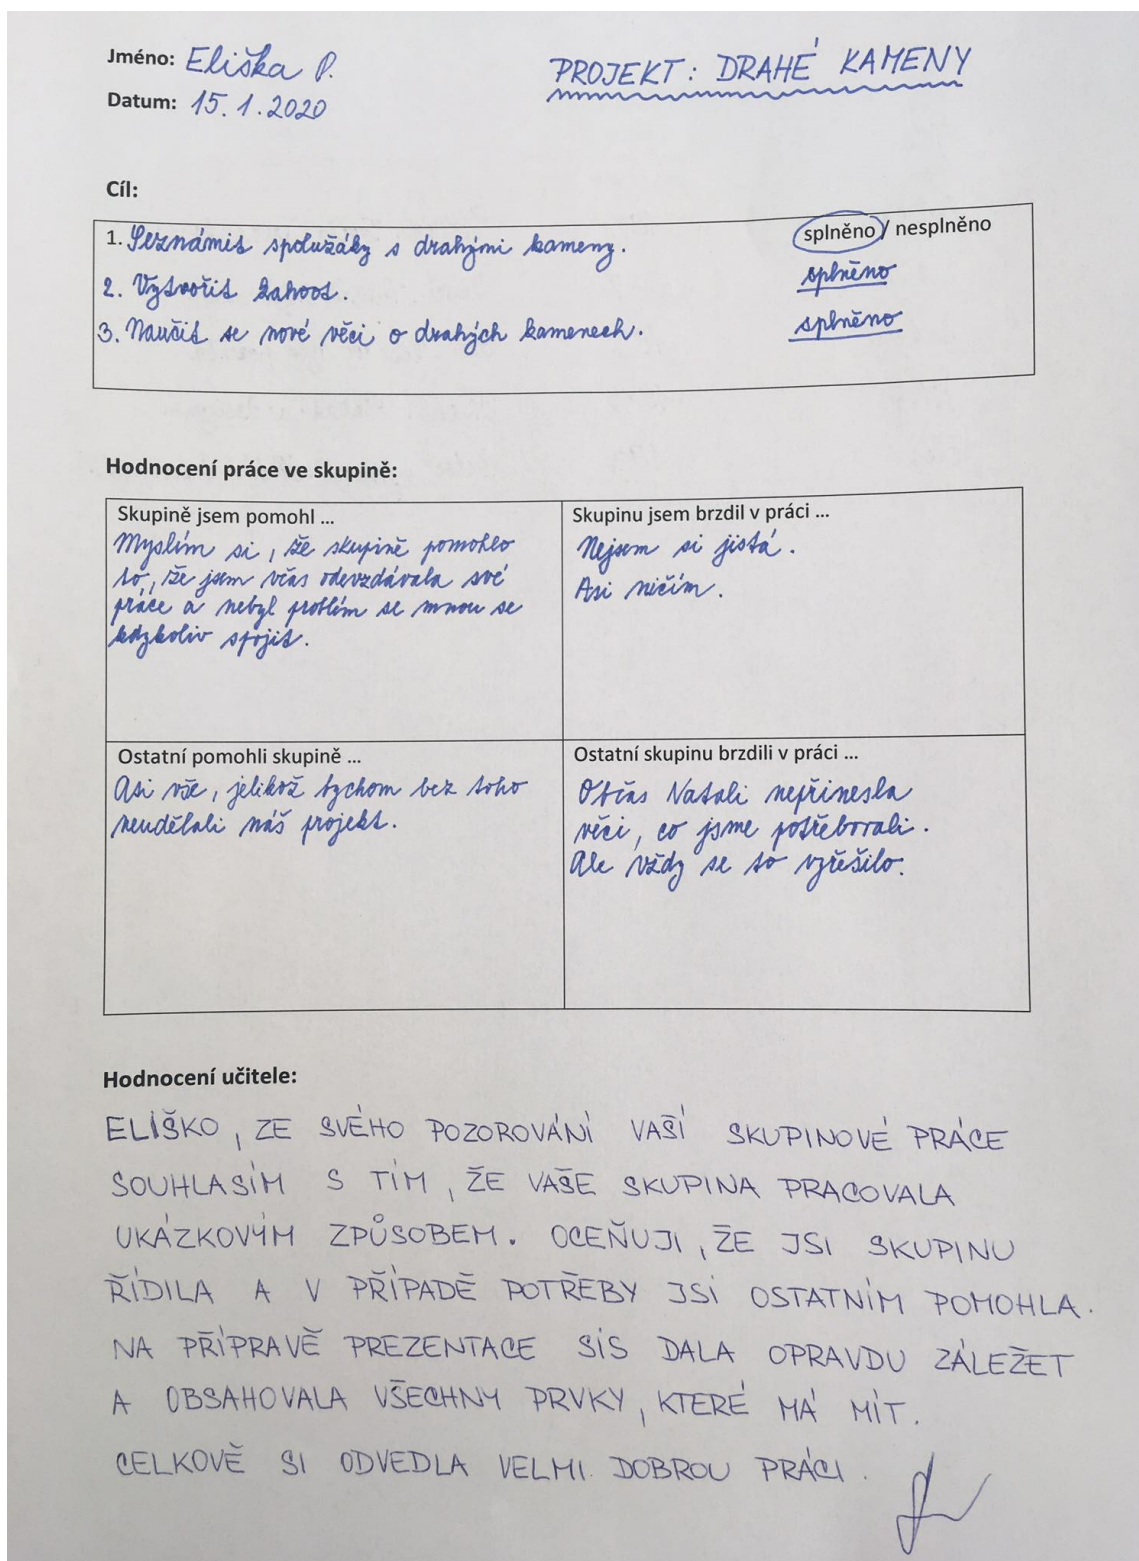 Jméno: Eliška P.
PROJEKT: DRAHÉ KAMENY
Datum: 15.1.2020
Cíl:
1. Seznámit spolužáky s drahými kameny. splněno / nesplněno
2. Vytvořit kahoot. splněno
3. Naučit se nové věci o drahých kamenech. splněno
Hodnocení práce ve skupině:
Skupině jsem pomohl ...
Myslím si, že skupině pomohlo
to, že jsem včas odevzdávala své
práce a nebyl problém se mnou se
kdykoliv spojit.
Skupinu jsem brzdil v práci ...
Nejsem si jistá.
Asi ničím.
Ostatní pomohli skupině ...
Asi vše, jelikož bychom bez toho
neudělali náš projekt.
Ostatní skupinu brzdili v práci ...
Občas Natali nepřinesla
věci, co jsme potřebovali.
Ale vždy se to vyřešilo.
Hodnocení učitele:
ELIŠKO, ZE SVÉHO POZOROVÁNÍ VAŠÍ SKUPINOVÉ PRÁCE
SOUHLASÍM S TÍM, ŽE VAŠE SKUPINA PRACOVALA
UKÁZKOVÝM ZPŮSOBEM. OCEŇUJI, ŽE JSI SKUPINU
ŘÍDILA A V PŘÍPADĚ POTŘEBY JSI OSTATNÍM POMOHLA.
NA PŘÍPRAVĚ PREZENTACE SIS DALA OPRAVDU ZÁLEŽET
A OBSAHOVALA VŠECHNY PRVKY, KTERÉ MÁ MÍT.
CELKOVĚ SI ODVEDLA VELMI DOBROU PRÁCI.